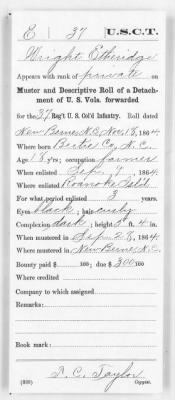 E | 37 | U.S.C.T.
Wright Etheridge
Appears with rank of private on
Muster and Descriptive Roll of a Detach-
ment of U. S. Vols. forwarded
for the 37 Reg't U. S. Col'd Infantry. Roll dated
New Berne, N.C. Nov. 18, 1864.
Where born Bertie Co, N.C.
Age 18 y'rs; occupation farmer
When enlisted Sep. 4, 1864.
Where enlisted Roanoke Isld
For what period enlisted 3 years.
Eyes black; hair curly
Complexion dark; height 5 ft. 4 in.
When mustered in Sep 28, 1864.
Where mustered in New Berne, N.C.
Bounty paid $ 100; due $ 300 100
Where credited
Company to which assigned
Remarks:
Book mark:
(339)
Taylor
Copyist.